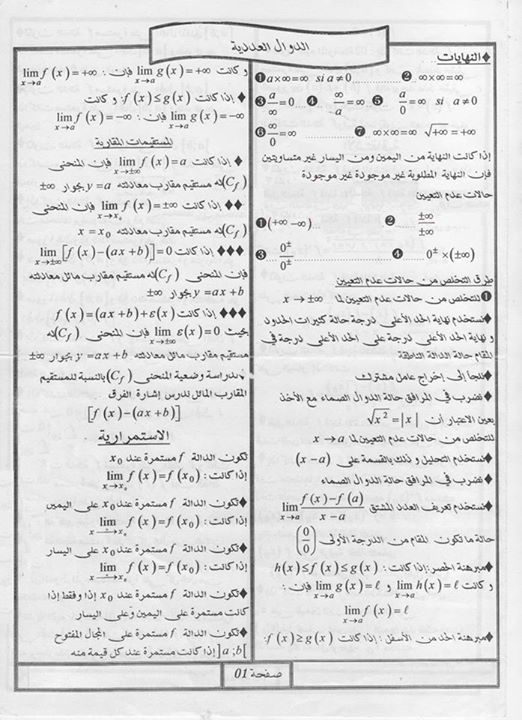 الدوال العددية
♦النهايات
❶ a×∞=∞ si a≠0........ ❷ ∞×∞=∞
❸ a/∞=0.. ❹ ∞/a=∞ ❺ a/0=∞ si a≠0
❻ ∞/0=∞ ❼ ∞×∞=∞ √+∞=+∞
إذا كانت النهاية من اليمين ومن اليسار غير متساويتين
فإن النهاية المطلوبة غير موجودة غير موجودة
حالات عدم التعيين
❶(+∞−∞)........ ❷ ±∞/±∞
❸ 0±/0±........ ❹ 0±×(±∞)
طرق التخلص من حالات عدم التعيين
❶للتخلص من حالات عدم التعيين لما x→±∞
♦نستخدم نهاية الحد الأعلى درجة حالة كثيرات الحدود
و نهاية الحد الأعلى درجة على الحد الأعلى درجة في
المقام حالة الدالة الناطقة
♦نلجأ إلى إخراج عامل مشترك
♦نضرب في المرافق حالة الدوال الصماء مع الأخذ
بعين الاعتبار أن √x²=|x|
للتخلص من حالات عدم التعيين لما x→a
♦نستخدم التحليل و ذلك بالقسمة على (x−a)
♦نضرب في المرافق حالة الدوال الصماء
♦نستخدم تعريف العدد المشتق lim x→a f(x)−f(a)/x−a
حالة ما تكون المقام من الدرجة الأولى (0/0)
♦مبرهنة الحصر:إذا كانت: h(x)≤f(x)≤g(x)
و كانت lim x→a h(x)=ℓ و lim x→a g(x)=ℓ فإن:
lim x→a f(x)=ℓ
♦مبرهنة الحد من الأسفل: إذا كانت f(x)≥g(x):
و كانت lim x→a g(x)=+∞ فإن: lim x→a f(x)=+∞
♦ إذا كانت f(x)≤g(x): و كانت
lim x→a g(x)=−∞ فإن: lim x→a f(x)=−∞
المستقيمات المقاربة:
♦ إذا كانت lim x→±∞ f(x)=a فإن المنحنى
(Cf)له مستقيم مقارب معادلته y=a بجوار ±∞
♦♦ إذا كانت lim x→x₀ f(x)=±∞ فإن المنحنى
(Cf)له مستقيم مقارب معادلته x=x₀
♦♦♦ إذا كانت lim x→±∞ [f(x)−(ax+b)]=0
فإن المنحنى (Cf)له مستقيم مقارب مائل معادلته
y=ax+b بجوار ±∞
♦♦♦♦إذا كانت f(x)=(ax+b)+ε(x)
بحيث lim x→±∞ ε(x)=0 فإن المنحنى (Cf)له
مستقيم مقارب مائل معادلته y=ax+b بجوار ±∞
لدراسة وضعية المنحنى (Cf)بالنسبة للمستقيم
المقارب المائل ندرس إشارة الفرق
[f(x)−(ax+b)]
الاستمرارية :
تكون الدالة f مستمرة عند x₀
إذا كانت: lim x→x₀ f(x)=f(x₀)
♦تكون الدالة f مستمرة عند x₀ على اليمين
إذا كانت: lim f(x)=f(x₀)
♦تكون الدالة f مستمرة عند x₀ على اليسار
إذا كانت: lim f(x)=f(x₀)
♦تكون الدالة f مستمرة عند x₀ إذا وفقط إذا
كانت مستمرة على اليمين وعلى اليسار
♦تكون الدالة f مستمرة على المجال المفتوح
]a;b[ إذا كانت مستمرة عند كل قيمة منه
صفحة 01